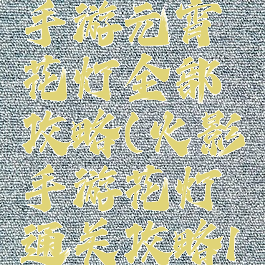 手游元宵
花灯全部
攻略(火影
手游花灯
通关攻略)